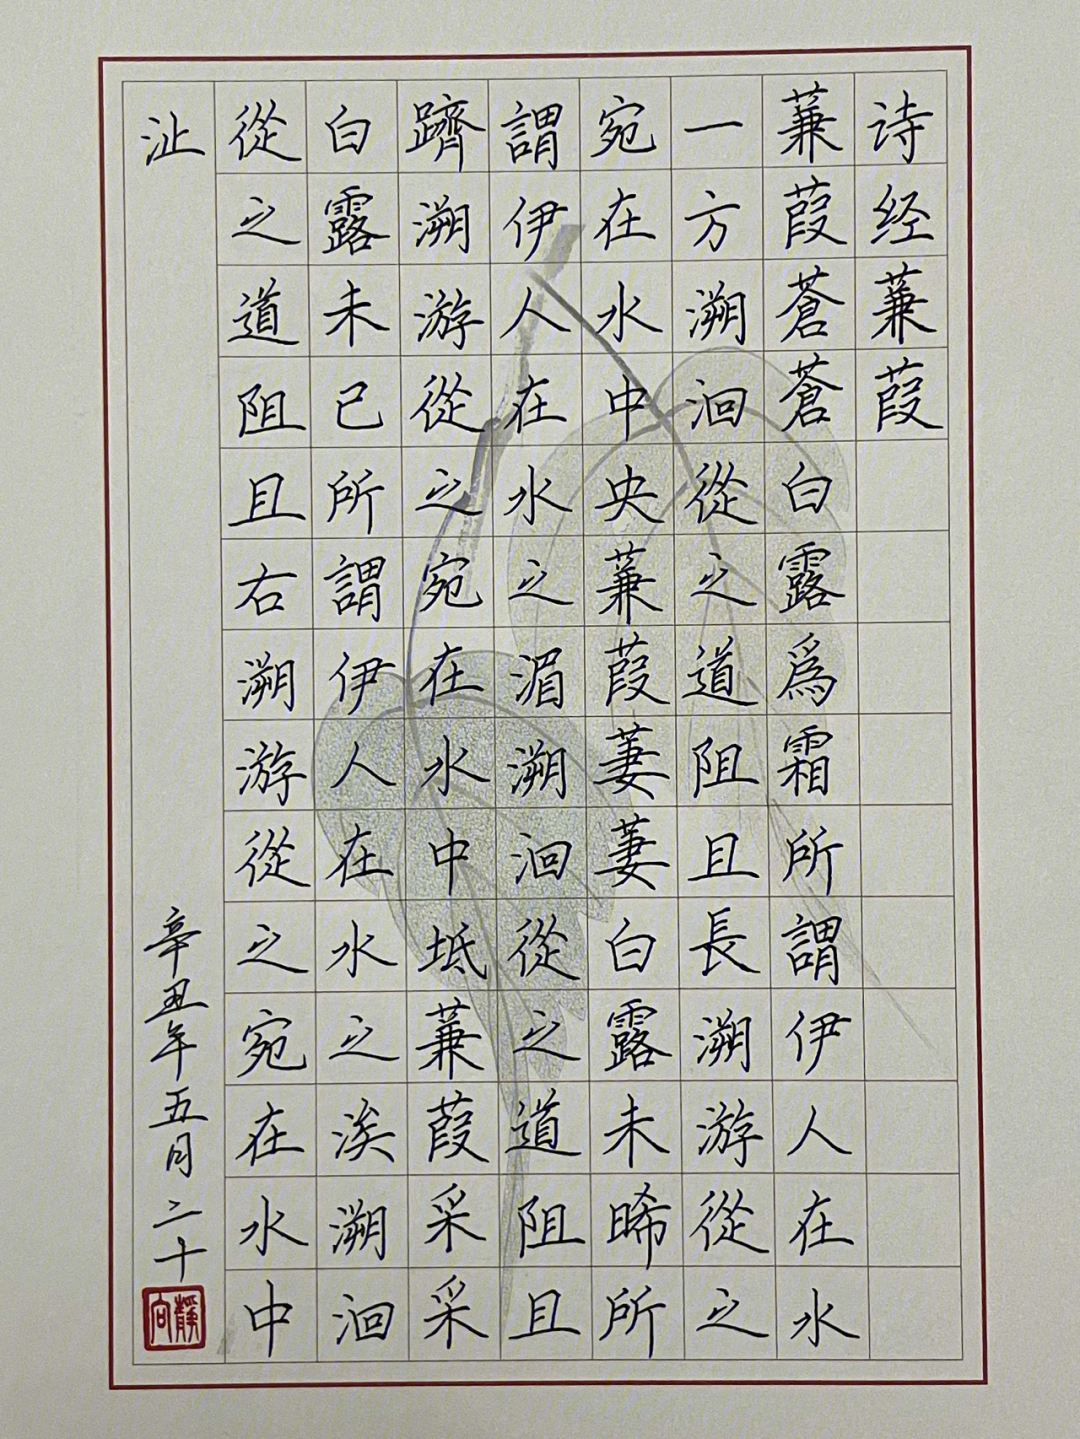 诗经蒹葭
蒹葭蒼蒼白露爲霜所謂伊人在水
一方溯洄從之道阻且長溯游從之
宛在水中央蒹葭萋萋白露未晞所
謂伊人在水之湄溯洄從之道阻且
躋溯游從之宛在水中坻蒹葭采采
白露未已所謂伊人在水之涘溯洄
從之道阻且右溯游從之宛在水中
沚
辛丑年五月二十
靜向